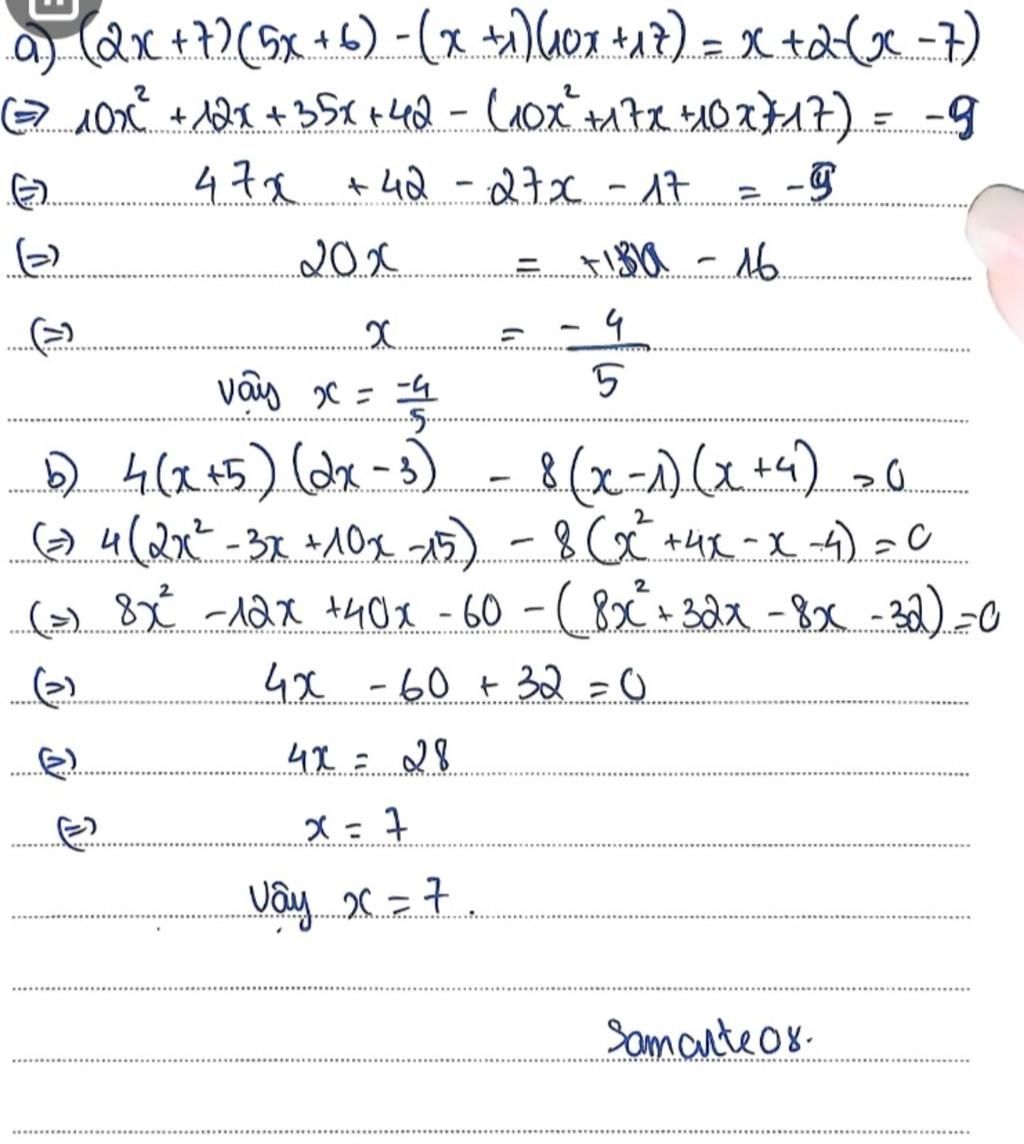 a) (2x+7)(5x+6) - (x+1)(10x+17) = x+2-(x-7)
(=) 10x² + 12x + 35x + 42 - (10x² + 17x + 10x + 17) = -9
(=) 47x + 42 - 27x - 17 = -9
(=) 20x = - 16
(=) x = - 4/5
Vậy x = -4/5
b) 4(x+5)(2x-3) - 8(x-1)(x+4) = 0
(=) 4(2x² - 3x + 10x - 15) - 8(x² + 4x - x - 4) = 0
(=) 8x² - 12x + 40x - 60 - (8x² + 32x - 8x - 32) = 0
(=) 4x - 60 + 32 = 0
(=) 4x = 28
(=) x = 7
Vậy x = 7.